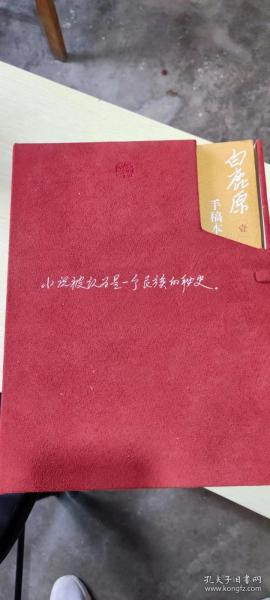 白鹿原
手稿本
壹
小说被认为是一个民族的秘史。
孔夫子旧书网
www.kongfz.com